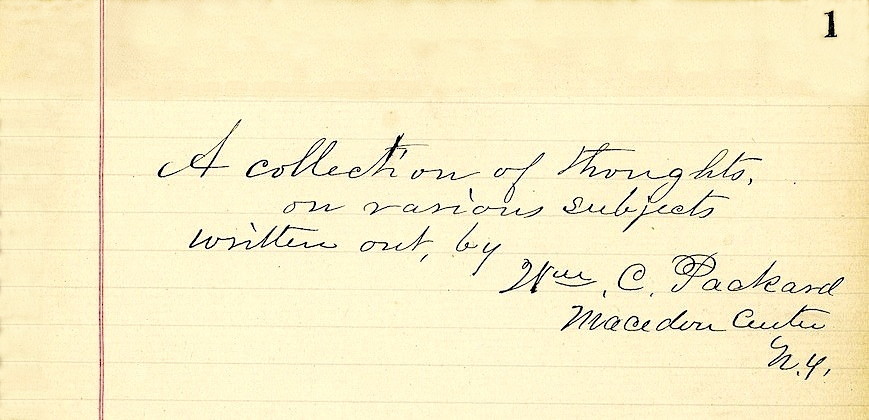 1
A collection of thoughts,
on various subjects
written out, by
Wm. C. Packard
Macedon Center
N.Y.